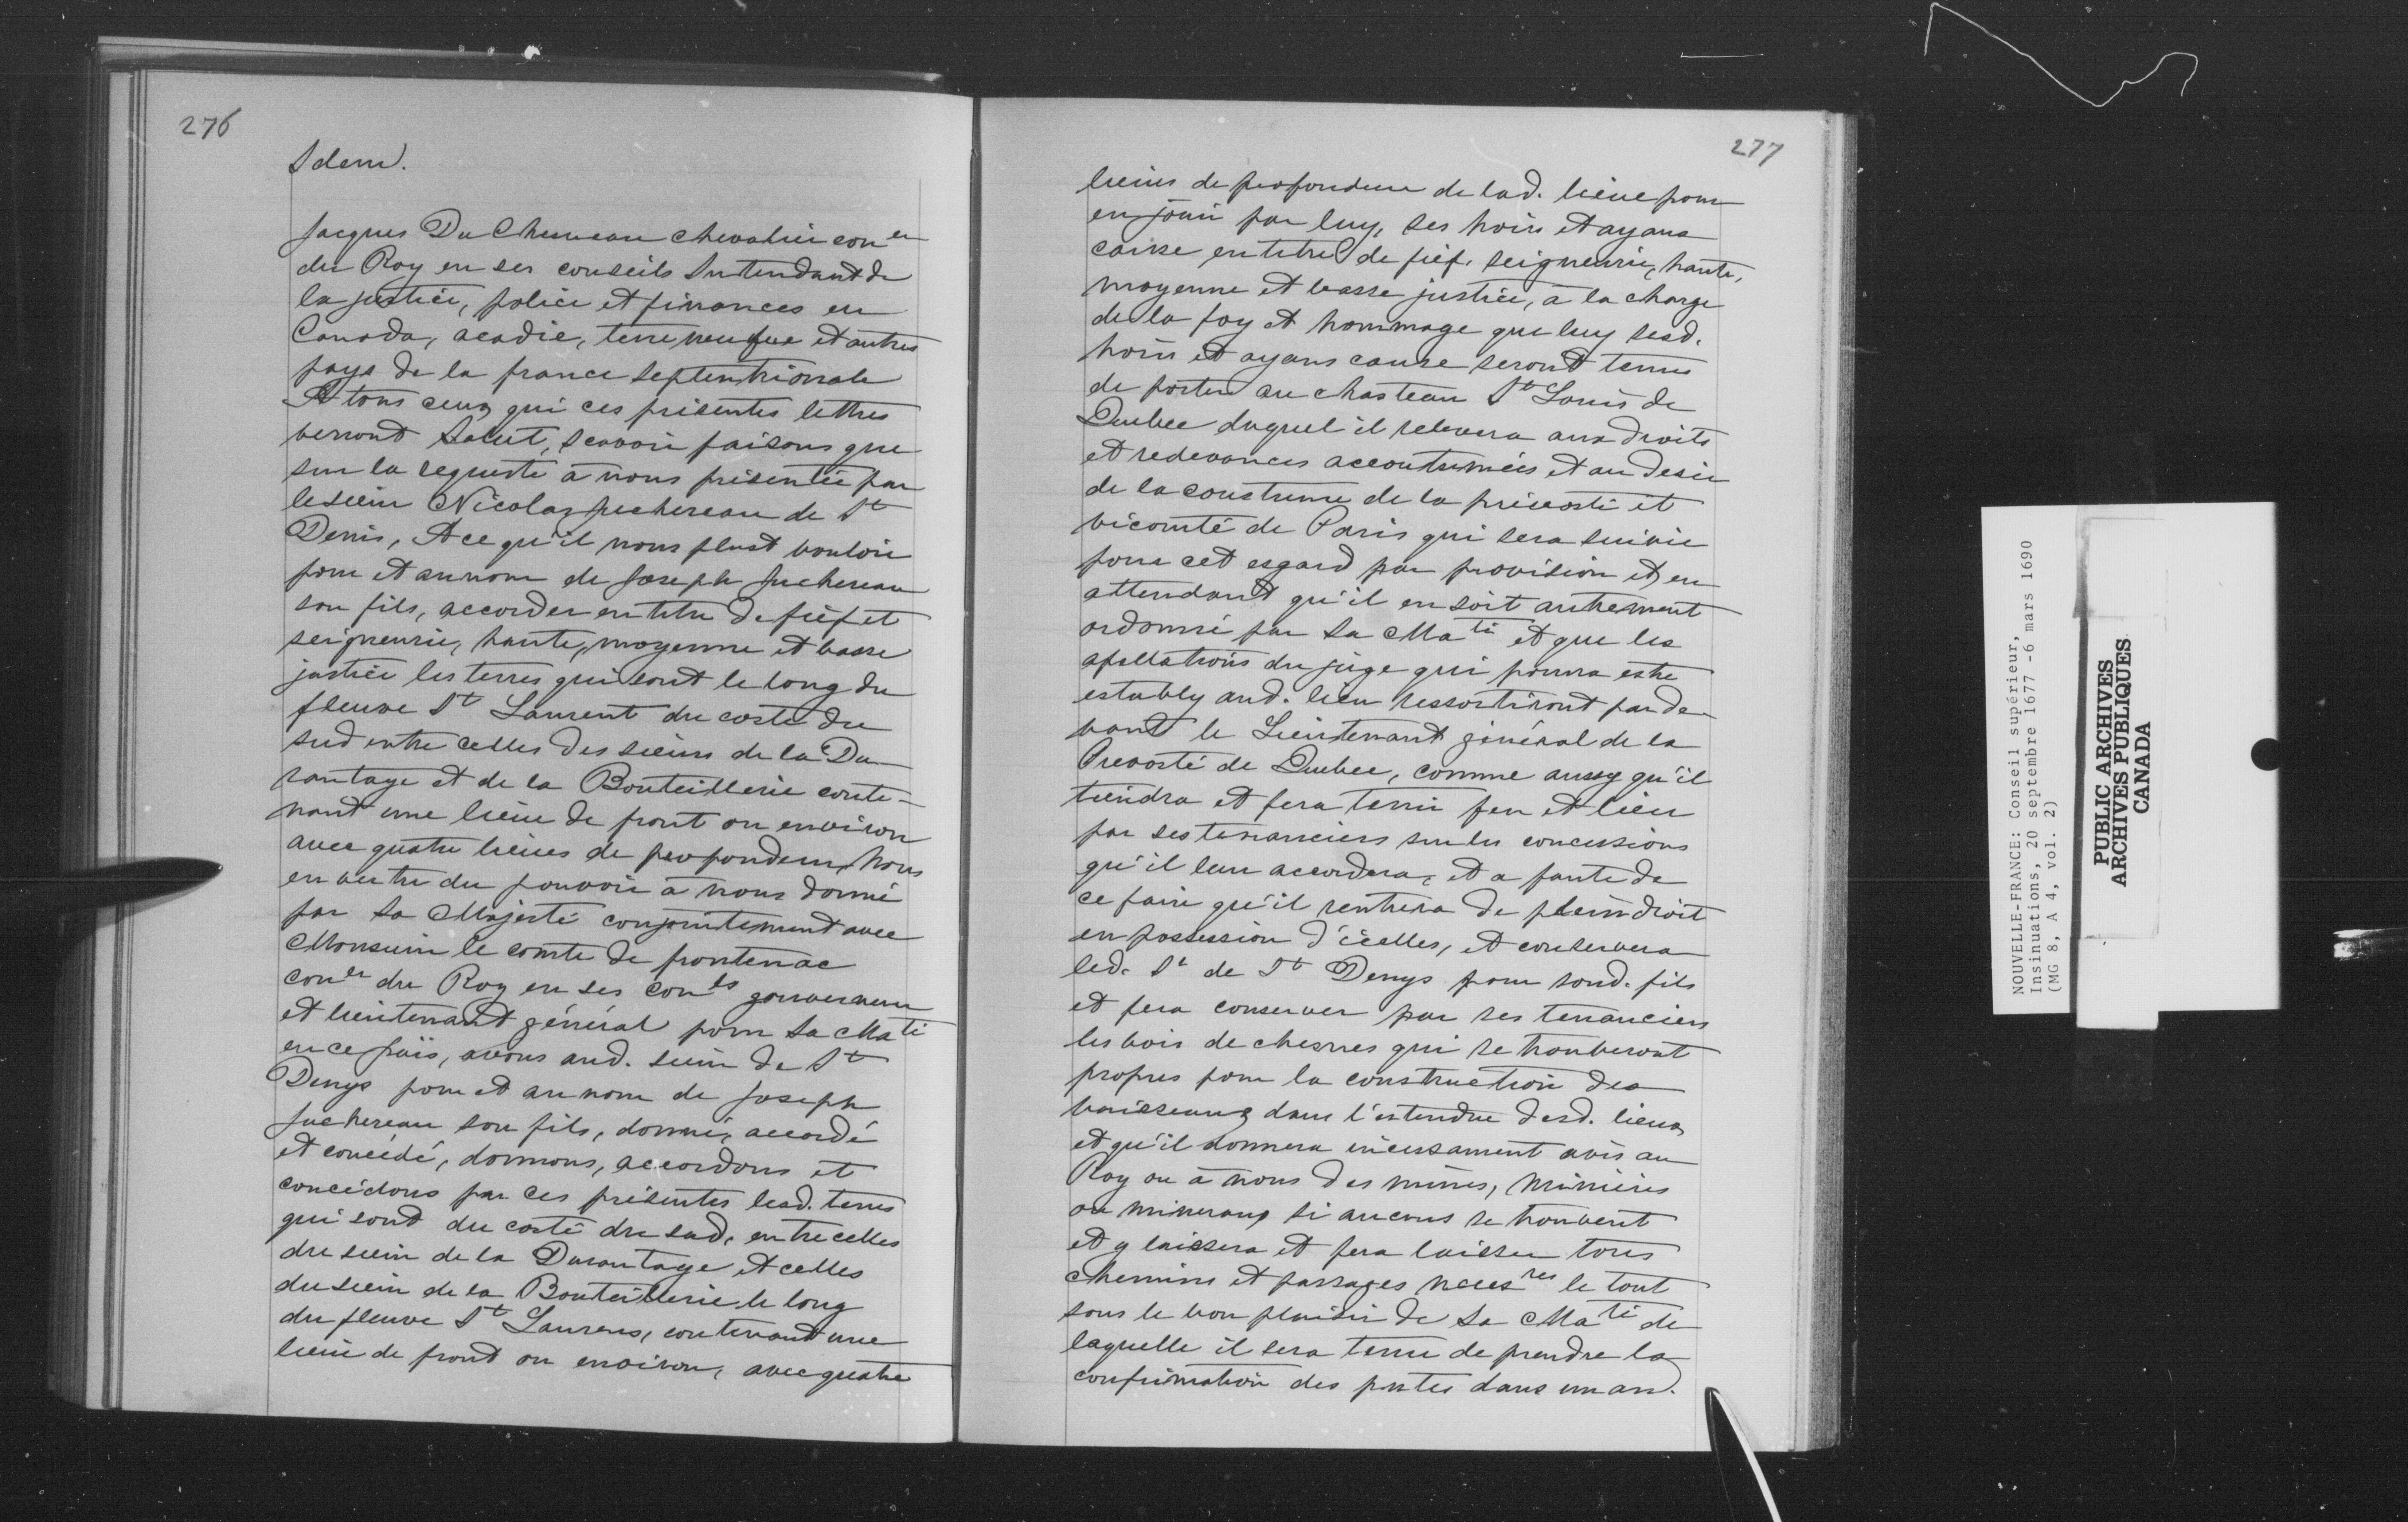 276
Idem.
Jacques Du Chesneau chevalier con er
du Roy en ses conseils Intendant de
la justice, police et finances en
Canada, acadie, terre neufue et autres
pays de la france septentrionale
A tous ceux qui ces présentes lettres
verront Salut, scavoir faisons que
sur la requeste à nous présentée par
le sieur Nicolas juchereau de St
Denis, A ce qu'il nous plust vouloir
pour et au nom de Joseph Juchereau
son fils, accorder en titre de fief et
seigneurie, haute, moyenne et basse
justice les terres qui sont le long du
fleuve St Laurent du costé du
sud entre celles des sieurs de la Du-
rantaye et de la Bouteillerie conte-
nant une lieue de front ou environ
avec quatre lieues de profondeur, Nous
en vertu du pouvoir à nous donné
par Sa Majesté conjointement avec
Monsieur le comte de frontenac
con er du Roy en ses con ls gouverneur
et lieutenant général pour Sa Ma té
en ce païs, avons aud. sieur de St
Denys pour et au nom de Joseph
Juchereau son fils, donné, accordé
et concédé, donnons, accordons et
concédons par ces présentes lesd. terres
qui sont du costé du sud, entre celles
du sieur de la Durantaye et celles
du sieur de la Bouteillerie le long
du fleuve St Laurens, contenant une
lieue de front ou environ, avec quatre
277
lieues de profondeur de lad. lieue pour
en jouir par luy, ses hoirs et ayans
cause en titre de fief, seigneurie, haute,
moyenne et basse justice, à la charge
de la foy et hommage que luy sesd.
hoirs et ayans cause seront tenus
de porter au chasteau St Louis de
Quebec duquel il relevera aux droits
et redevances accoutumées et au desir
de la coustume de la prévosté et
vicomté de Paris qui sera suivie
pour cet esgard par provision et en
attendant qu'il en soit autrement
ordonné par Sa Ma té et que les
apellations du juge qui pourra estre
estably aud. lieu ressortiront par de-
vant le Lieutenant général de la
Prevosté de Quebec, comme aussy qu'il
tiendra et fera tenir feu et lieu
par ses tenanciers sur les concessions
qu'il leur accordera, et a faute de
ce faire qu'il rentrera de plein droit
en possession d'icelles, et conservera
led. Sr de St Denys pour sond. fils
et fera conserver par ses tenanciers
les bois de chesnes qui se trouveront
propres pour la construction des
vaisseaux dans l'estendue desd. lieux
et qu'il donnera incessament avis au
Roy ou à nous des mines, minières
ou mineraux si aucuns se trouvent
et y laissera et fera laisser tous
chemins et passages neces res le tout
sous le bon plaisir de Sa Ma té de
laquelle il sera tenu de prendre la
confirmation des pntes dans un an.
NOUVELLE-FRANCE: Conseil supérieur,
Insinuations, 20 septembre 1677 -6 mars 1690
(MG 8, A 4, vol. 2)
PUBLIC ARCHIVES
ARCHIVES PUBLIQUES
CANADA